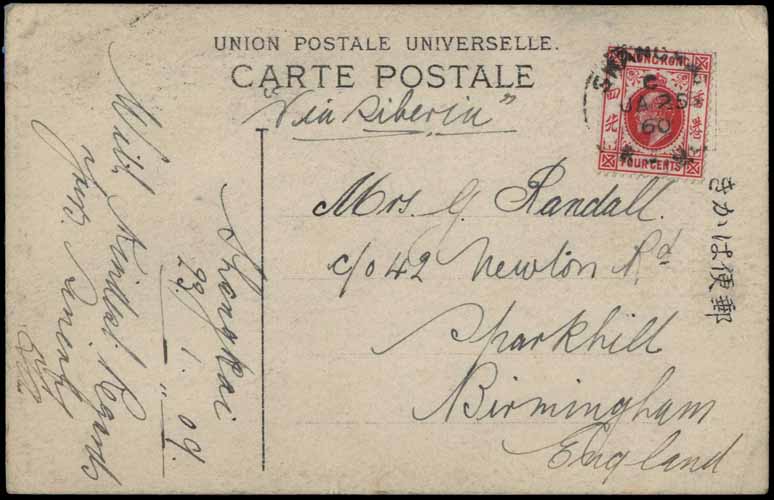 UNION POSTALE UNIVERSELLE.
CARTE POSTALE
"Via Siberia"
HONG KONG
FOUR CENTS
C
JA 25
60
Mrs. G. Randall.
c/o 42 Newton Rd
Sparkhill
Birmingham
England
Shanghai
23. 1. 09.
With Kindest Regards
Yours Sincerely
きかは便郵